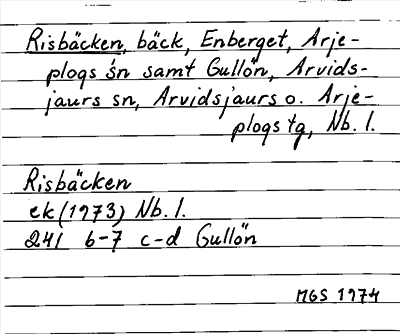 Risbäcken, bäck, Enberget, Arje-
plogs sn samt Gullön, Arvids-
jaurs sn, Arvidsjaurs o. Arje-
plogs tg, Nb. l.
Risbäcken
ek (1973) Nb. l.
24I 6-7 c-d Gullön
MGS 1974